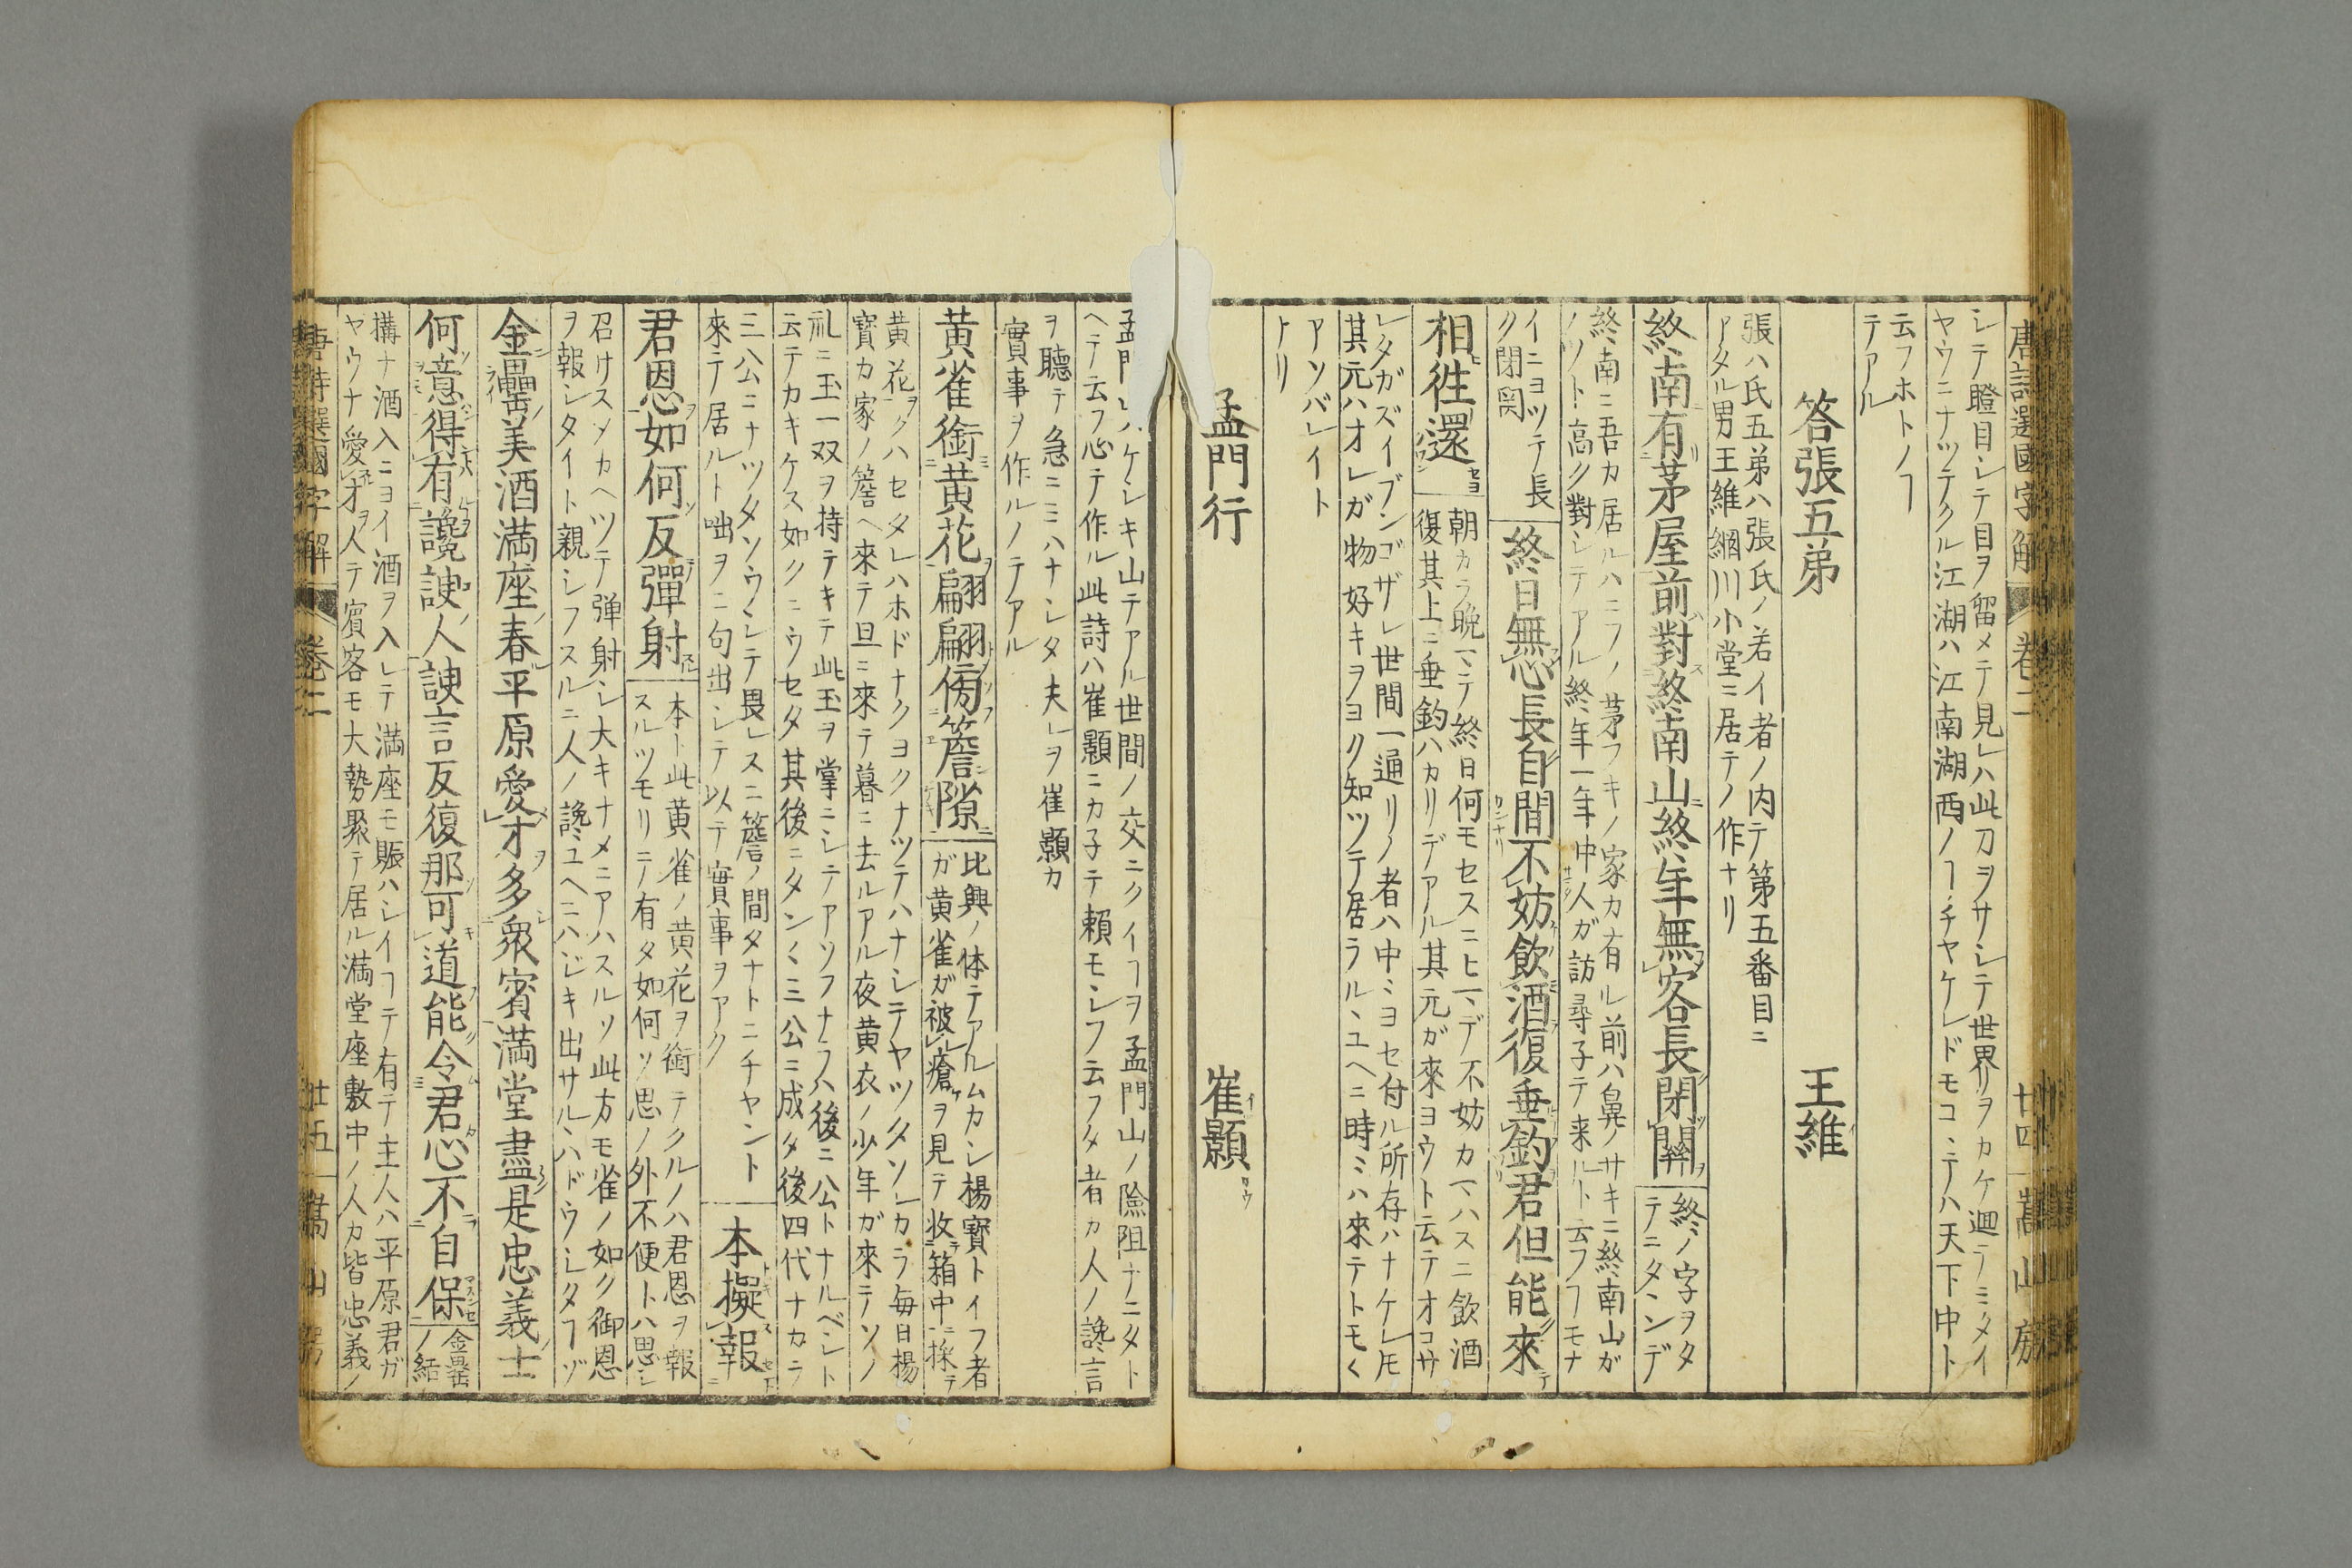 唐詩選國字解 卷二 廿四 嵩山房
シテ瞪目シテ目ヲ留メテ見レハ此刀ヲサシテ世界リヲカケ廻ラミタイ
ヤウニナツテクル江湖ハ江南湖西ノヿチヤケレドモコヽテハ天下中ト
云フホトノヿ
テアル
答張五弟 王維
張ハ氏五弟ハ張氏ノ若イ者ノ内テ第五番目ニ
アタル男王維網川小堂ニ居テノ作ナリ
終南有茅屋前對終南山終年無客長閉關
終ノ字ヲタ
テニタンデ
終南ニ吾カ居ルハニフノ茅フキノ家カ有ル前ハ鼻ノサキニ終南山ガ
ノツト高ク對シテアル終年一年中人ガ訪尋子テ来ルト云フヿモナ
イニヨツテ長
ク閉関
終日無心長自閒不妨飲酒復垂釣君但能來
相徃還
朝カラ晩ヽテ終日何モセスニヒヽデ不妨カヽハスニ飲酒
復其上ニ垂釣ハカリデアル其元ガ來ヨウト云テオコサ
レタガズイブンゴザレ世間一通リノ者ハ中ミヨセ付ル所存ハナケレ𪜈
其元ハオレガ物好キヲヨク知ツテ居ラルヽユヘニ時ミハ來テトモく
アソバレイト
ナリ
孟門行 崔顥
ケレキ山テアル世間ノ交ニクイヿヲ孟門山ノ險阻ナニタト
ヘテ云フ心テ作ル此詩ハ崔顥ニカ子テ頼モシフ云フタ者カ人ノ讒言
ヲ聽テ急ニミハナシタ夫レヲ崔顥カ
實事ヲ作ルノテアル
黄雀銜黄花翩翩傍簷隙
比興ノ体テアルムカシ楊寳トイフ者
ガ黄雀ガ被レ瘡ヲ見テ收箱中ニ採テ
黄花ヲクハセタレハホドナクヨクナツテハナシテヤツタソレカラ毎日楊
寳カ家ノ簷ヘ來テ旦ニ來テ暮ニ去ルアル夜黄衣ノ少年ガ來テソノ
礼ニ玉一双ヲ持テキテ此玉ヲ掌ニシテアソフナラハ後ニ公トナルベシト
云テカキケス如クニウセタ其後ニタンく三公ニ成タ後四代ナカラ
三公ニナツタソウシテ畏レスニ簷ノ間タナトニチヤント
來テ居ルト咄ヲニ句出シテ以テ實事ヲアク
本擬報
君恩如何反彈射
本ト此黄雀ノ黄花ヲ銜テクルノハ君恩ヲ報
スルツモリニテ有タ如何ソ思ノ外不便トハ思シ
召けスメカヘツテ弾射シ大キナメニアハスルソ此方モ雀ノ如ク御恩
ヲ報シタイト親シフスルニ人ノ讒ユヘニハジキ出サルヽハドウシタヿゾ
金罍美酒満座春平原愛才多衆賓満堂盡是忠義士
何意得有讒諛人諛言反復那可道能令君心不自保
金罍
ノ結
搆ナ酒入ニヨイ酒ヲ入レテ満座モ賑ハシイヿテ有テ主人ハ平原君ガ
ヤウナ愛才ヲ人テ賓客モ大勢聚テ居ル満堂座敷中ノ人カ皆忠義ノ
唐詩選國字解 卷二 廿五 嵩山房